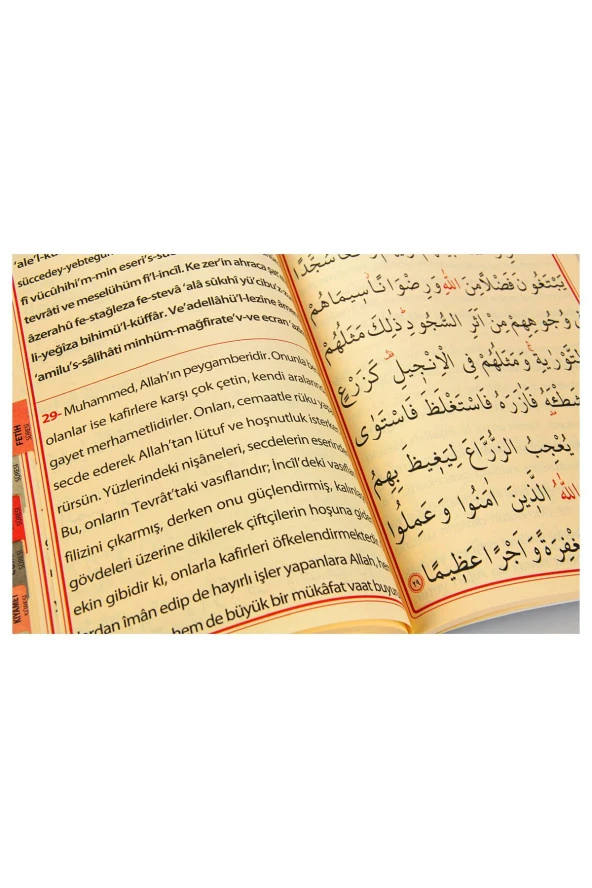 'ale'l-kü
süccedey-yebteğun
fî vücûhihi'm-min eseri's-sü
tevrâti ve meselühüm fi'l-incîl. Ke zer'in ahraca şat
âzerahû fe-stağleza fe-stevâ 'alâ sûkıhî yü'cibu'z
li-yeğîza bihimü'l-küffâr. Ve'adellâhü'l-lezîne âmen
'amilu's-sâlihâti minhüm-mağfirate'v-ve ecran 'az
29- Muhammed, Allah'ın peygamberidir. Onunla be
olanlar ise kafirlere karşı çok çetin, kendi araların
gayet merhametlidirler. Onları, cemaatle rüku yap
secde ederek Allah'tan lütuf ve hoşnutluk isterken
rürsün. Yüzlerindeki nişâneleri, secdelerin eserinde
Bu, onların Tevrât'taki vasıflarıdır; İncil'deki vasıflar
filizini çıkarmış, derken onu güçlendirmiş, kalınla
gövdeleri üzerine dikilerek çiftçilerin hoşuna gide
ekin gibidir ki, onlarla kafirleri öfkelendirmektedir
lardan îmân edip de hayırlı işler yapanlara Allah, hem
hem de büyük bir mükâfat vaat buyun
FETİH
SÛRESİ
SÛRESİ
SÛRESİ
KIYAMET
SÛRESİ
سُجَّدًا
يَبْتَغُونَ فَضْلًا مِنَ اللّٰهِ وَرِضْوَانًا سِيمَاهُمْ
وُجُوهِهِمْ مِنْ اَثَرِ السُّجُودِ ذٰلِكَ مَثَلُهُمْ
التَّوْرٰيةِ وَمَثَلُهُمْ فِى الْاِنْجِيلِ كَزَرْعٍ
شَطْئَهُ فَاٰزَرَهُ فَاسْتَغْلَظَ فَاسْتَوٰى
يُعْجِبُ الزُّرَّاعَ لِيَغِيظَ بِهِمُ
اللّٰهُ الَّذِينَ اٰمَنُوا وَعَمِلُوا
مَغْفِرَةً وَاَجْرًا عَظِيمًا ٢٩